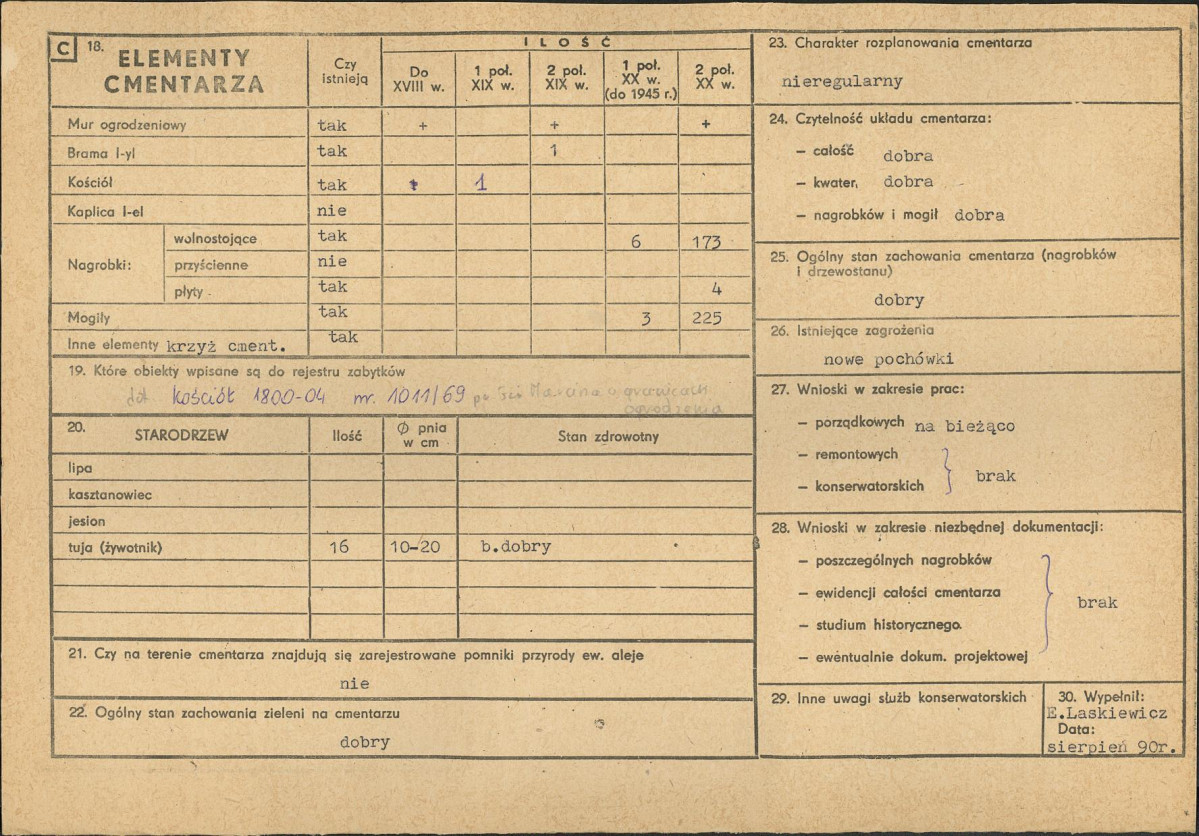 C 18. ELEMENTY CMENTARZA
Czy istnieją
ILOŚĆ
Do XVIII w.
1 poł. XIX w.
2 poł. XIX w.
1 poł. XX w. (do 1945 r.)
2 poł. XX w.
Mur ogrodzeniowy tak + + +
Brama I-yl tak 1
Kościół tak 1
Kaplica I-el nie
Nagrobki:
wolnostojące tak 6 173
przyścienne nie
płyty tak 4
Mogiły tak 3 225
Inne elementy krzyż cment. tak
19. Które obiekty wpisane są do rejestru zabytków
kościół 1800-04 nr. 1011/69 Marcina w granicach
ogrodzenia
20. STARODRZEW Ilość Ø pnia w cm Stan zdrowotny
lipa
kasztanowiec
jesion
tuja (żywotnik) 16 10-20 b.dobry
21. Czy na terenie cmentarza znajdują się zarejestrowane pomniki przyrody ew. aleje
nie
22. Ogólny stan zachowania zieleni na cmentarzu
dobry
23. Charakter rozplanowania cmentarza
nieregularny
24. Czytelność układu cmentarza:
— całość dobra
— kwater, dobra
— nagrobków i mogił dobra
25. Ogólny stan zachowania cmentarza (nagrobków
i drzewostanu)
dobry
26. Istniejące zagrożenia
nowe pochówki
27. Wnioski w zakresie prac:
— porządkowych na bieżąco
— remontowych
— konserwatorskich
brak
28. Wnioski w zakresie niezbędnej dokumentacji:
— poszczególnych nagrobków
— ewidencji całości cmentarza
— studium historycznego.
— ewentualnie dokum. projektowej
brak
29. Inne uwagi służb konserwatorskich
30. Wypełnił:
E.Laskiewicz
Data:
sierpień 90r.